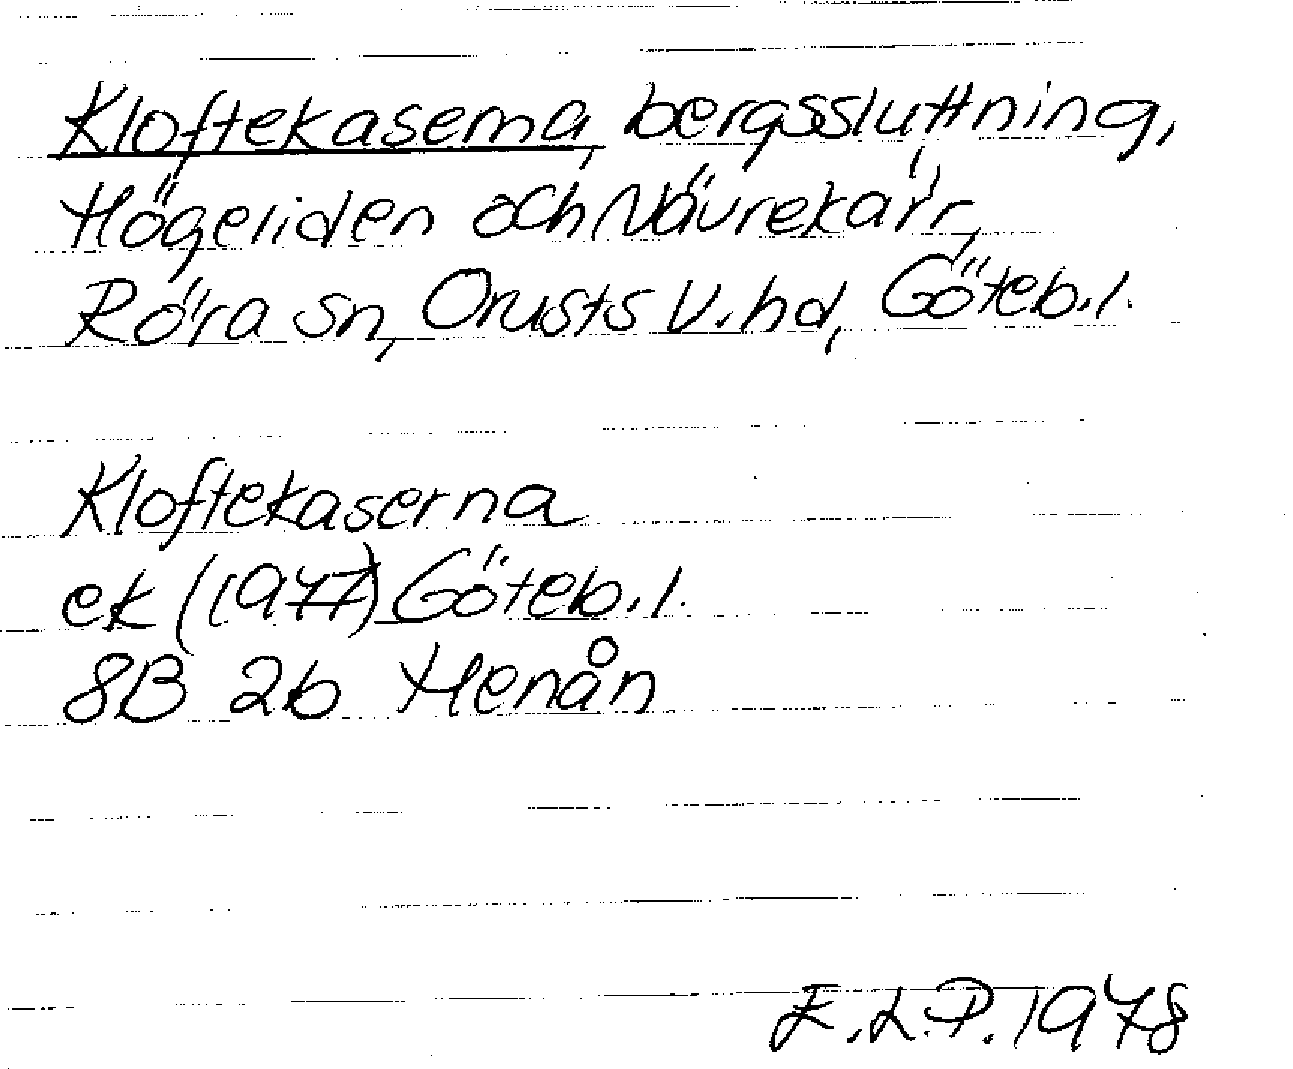 Kloftekaserna, bergssluttning,
Högeliden och Nävrekärr,
Röra sn, Orusts V. hd, Göteb. l.
Kloftekaserna
ek (1977) Göteb. l.
8B 2b Henån
E.L.P. 1978